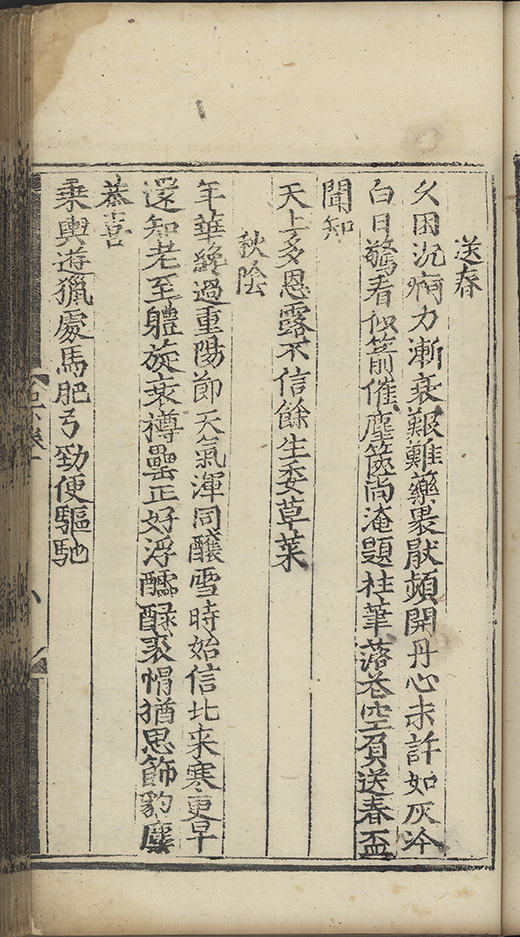 送春
久困沉痾力漸衰艱難藥褁猒頻開丹心未許如灰冷
白日驚看似箭催塵篋尚淹題柱筆落巷空負送春盃
聞知
天上多恩露不信餘生委草萊
秋陰
年華纔過重陽節天氣渾同釀雪時始信北来寒更早
還知老至體旋衰樽罍正好浮醽醁裘帽猶思飾豹
恭喜
乘輿遊獵處馬肥弓勁便驅馳